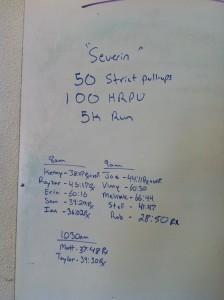 "Severin"
50 Strict Pull-ups
100 HRPU
5K Run
8am
Kenny - 38:07
Rayzor - 45:17Rx
Erin - 60:16
Sam - 39:29Rx
Ian - 36:02Rx
9am
Joe - 44:11
Vimy - 60:30
Melnale - 66:44
Stef - 41:47
Rob - 28:50 Rx
1030am
Matt - 37:48 Rx
Taylor - 39:30Rx